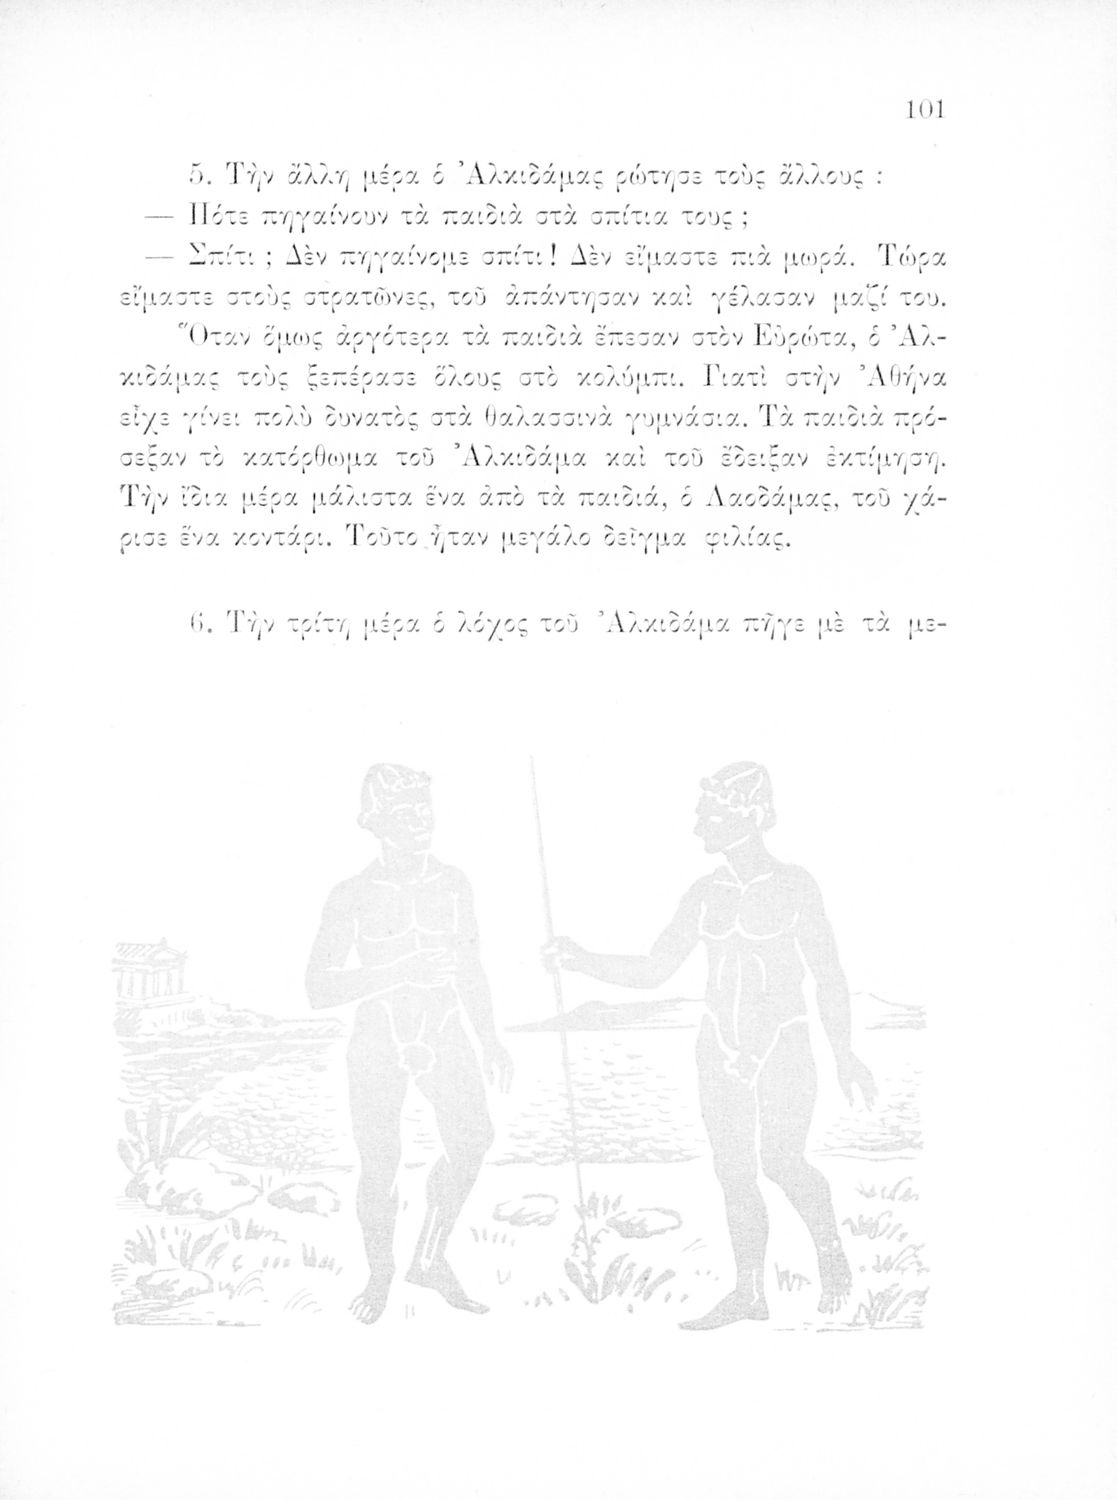 101
5. Τὴν ἄλλη μέρα ὁ Ἀλκιδάμας ρώτησε τοὺς ἄλλους :
— Πότε πηγαίνουν τὰ παιδιὰ στὰ σπίτια τους ;
— Σπίτι ; Δὲν πηγαίνομε σπίτι! Δὲν εἴμαστε πιὰ μωρά. Τώρα
εἴμαστε στοὺς στρατῶνες, τοῦ ἀπάντησαν καὶ γέλασαν μαζί του.
Ὅταν ὅμως ἀργότερα τὰ παιδιὰ ἔπεσαν στὸν Εὐρώτα, ὁ Ἀλ-
κιδάμας τοὺς ξεπέρασε ὅλους στὸ κολύμπι. Γιατὶ στὴν Ἀθήνα
εἶχε γίνει πολὺ δυνατὸς στὰ θαλασσινὰ γυμνάσια. Τὰ παιδιὰ πρό-
σεξαν τὸ κατόρθωμα τοῦ Ἀλκιδάμα καὶ τοῦ ἔδειξαν ἐκτίμηση.
Τὴν ἴδια μέρα μάλιστα ἕνα ἀπὸ τὰ παιδιά, ὁ Λαοδάμας, τοῦ χά-
ρισε ἕνα κοντάρι. Τοῦτο ἦταν μεγάλο δεῖγμα φιλίας.
6. Τὴν τρίτη μέρα ὁ λόχος τοῦ Ἀλκιδάμα πῆγε μὲ τὰ με-